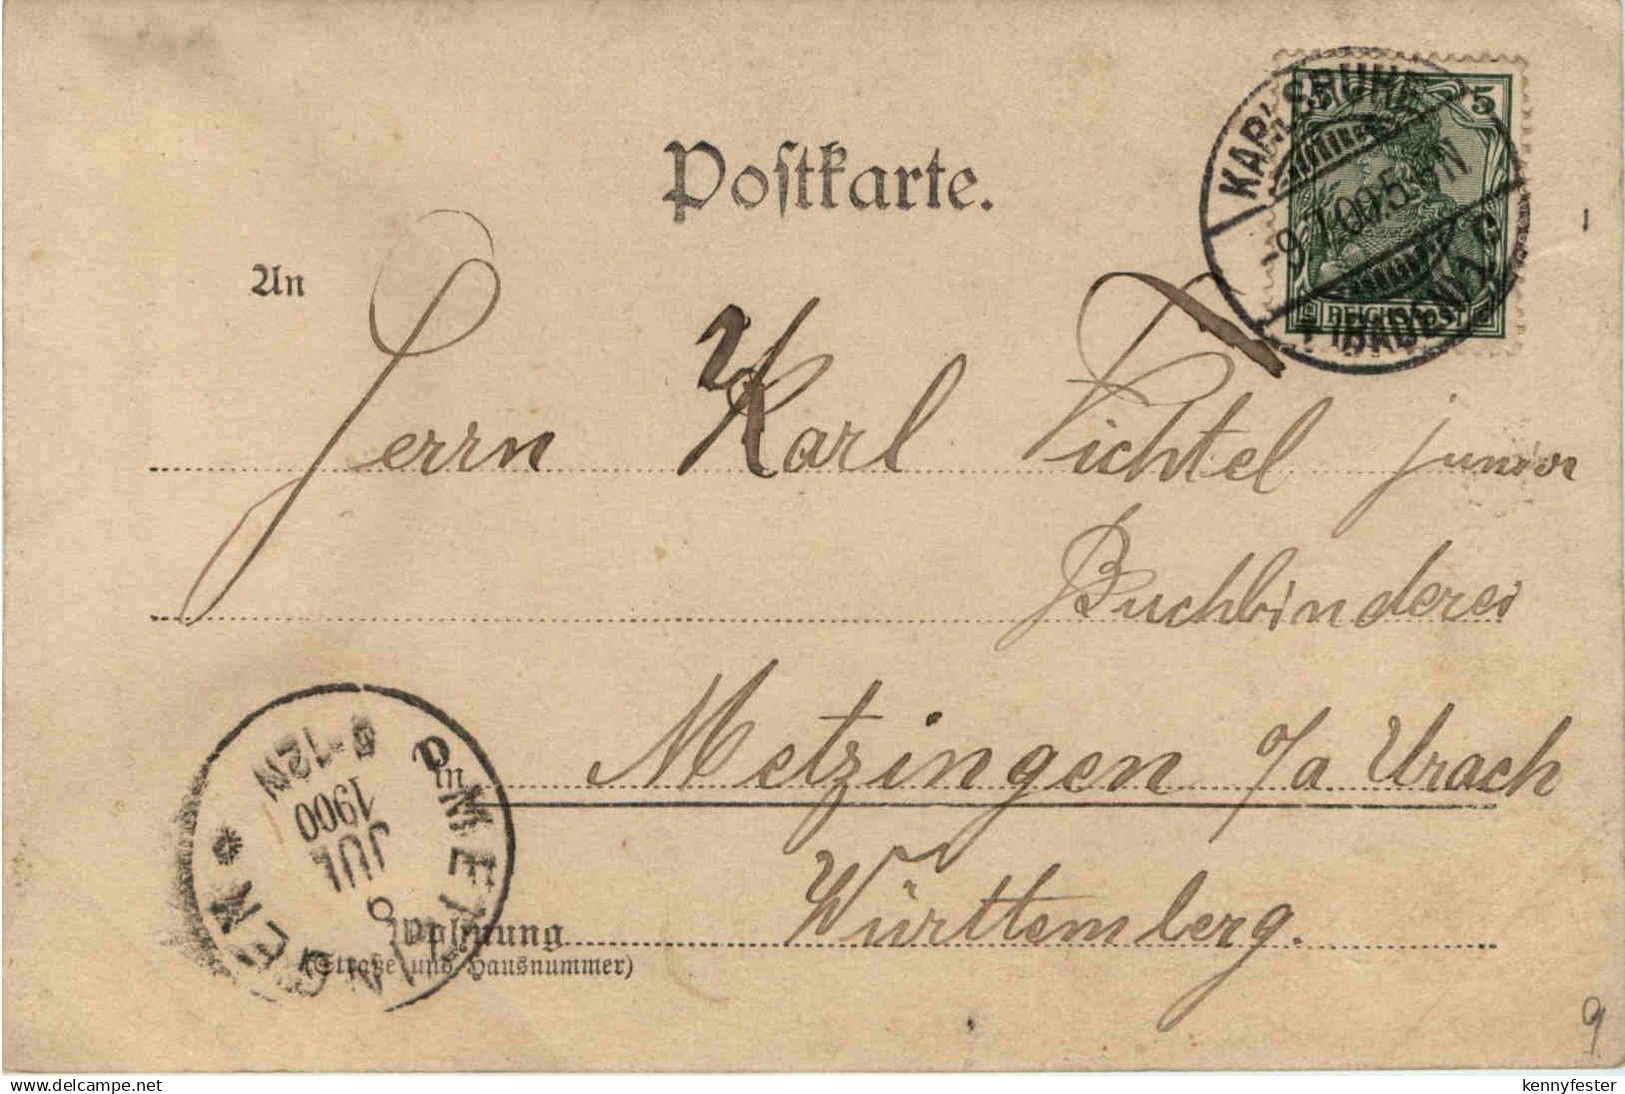 Postkarte.
KARLSRUHE
5
-9.7.00.5-6N
(BADEN) 1.
REICHSPOST
An
Herrn Karl Fichtel junior
Buchbinderei
in Metzingen O/a Urach
METZINGEN
9
JUL
1900
9-12N
Wohnung
(Straße und Hausnummer)
Württemberg.
9
www.delcampe.net
kennyfester